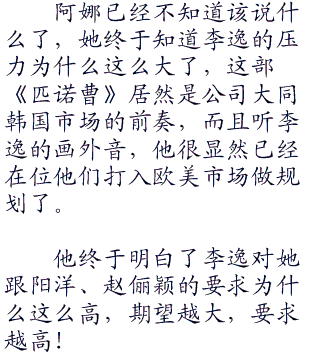 阿娜已经不知道该说什
么了，她终于知道李逸的压
力为什么这么大了，这部
《匹诺曹》居然是公司大同
韩国市场的前奏，而且听李
逸的画外音，他很显然已经
在位他们打入欧美市场做规
划了。
他终于明白了李逸对她
跟阳洋、赵俪颖的要求为什
么这么高，期望越大，要求
越高！